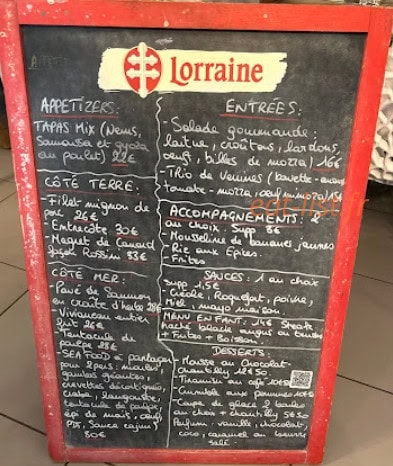 Lorraine
APPETIZERS:
TAPAS Mix (Nems,
Samoussa et gyoza
au poulet) 22€
CÔTÉ TERRE:
- Filet mignon de
porc 26€
- Entrecôte 30€
- Magret de Canard
façon Rossini 33€
CÔTÉ MER:
- Pavé de Saumon
en croûte d'herbe 28€
- Vivaneau entier
frit 26€
- Tentacule de
poulpe 28€
- SEA FOOD à partager
pour 2 pers: moules,
gambas géantes,
crevettes décortiquées,
crabe, langouste,
tentacule de poulpe,
épi de maïs, oeuf,
PDT, Sauce cajun
80€
ENTRÉES:
- Salade gourmande:
laitue, croûtons, lardons,
oeuf, billes de mozza 16€
- Trio de Verrines (
tomate - mozza, oeuf mimosa) 15€
ACCOMPAGNEMENTS: 2
au choix. Supp 8€
- Mousseline de bananes jaunes
- Riz aux Epices.
- Frites
SAUCES: 1 au choix
supp 1,5€
- Créole, Roquefort, poivre,
Miel, mayo maison.
MENU ENFANT: 14€ Steak
haché black angus ou
+ Frites + Boisson.
DESSERTS:
- Mousse au Chocolat -
chantilly 12€50
- Tiramisu au café 10€50
- Crumble aux pommes 10€50
- Coupe de glace 2 boules
au choix + chantilly 5€50
Parfum: vanille, chocolat,
coco, caramel au beurre
salé.